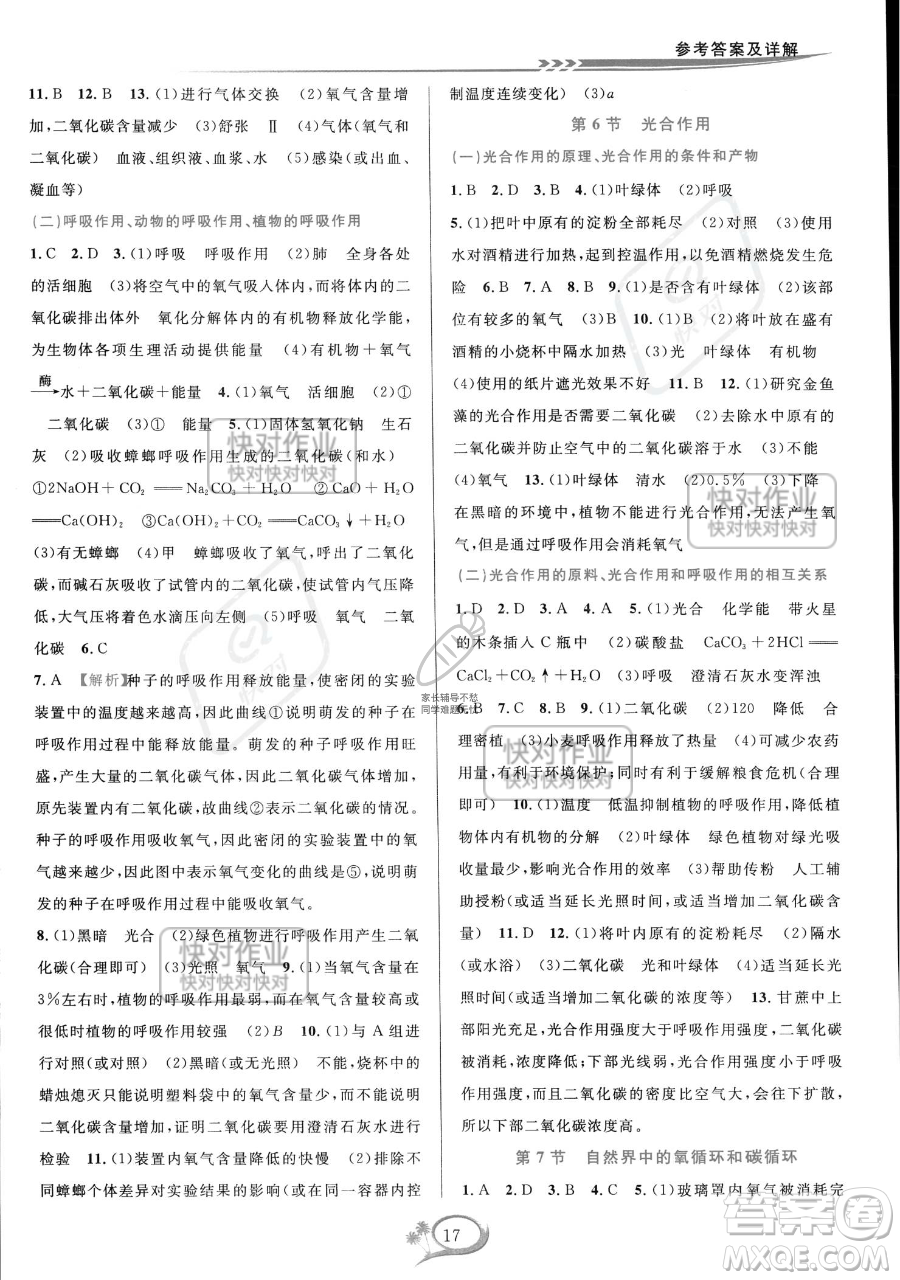 参考答案及详解
11.B 12.B 13.(1)进行气体交换 (2)氧气含量增
加,二氧化碳含量减少 (3)舒张 Ⅱ (4)气体(氧气和
二氧化碳) 血液、组织液、血浆、水 (5)感染(或出血、
凝血等)
(二)呼吸作用、动物的呼吸作用、植物的呼吸作用
1.C 2.D 3.(1)呼吸 呼吸作用 (2)肺 全身各处
的活细胞 (3)将空气中的氧气吸入人体,将体内的二
氧化碳排出体外 氧化分解体内的有机物释放化学能,
为生物体各项生理活动提供能量 (4)有机物+氧气
酶
→水+二氧化碳+能量 4.(1)氧气 活细胞 (2)①
二氧化碳 (3)① 能量 5.(1)固体氢氧化钠 生石
灰 (2)吸收蟑螂呼吸作用生成的二氧化碳(和水)
①2NaOH+CO₂══Na₂CO₃+H₂O ②CaO+H₂O
══Ca(OH)₂ ③Ca(OH)₂+CO₂══CaCO₃↓+H₂O
(3)有无蟑螂 (4)甲 蟑螂吸收了氧气,呼出了二氧化
碳,而碱石灰吸收了试管内的二氧化碳,使内部气压降
低,大气压将着色水滴压向左侧 (5)呼吸 氧气 二氧
化碳 6.C
7.A 【解析】种子的呼吸作用释放能量,使密闭的实验
装置中的温度越来越高,因此曲线①说明萌发的种子在
呼吸作用过程中能释放能量。萌发的种子呼吸作用旺
盛,产生大量的二氧化碳气体,使二氧化碳越来越多,但
原先装置内有二氧化碳,故曲线②表示二氧化碳的情况。
种子的呼吸作用吸收氧气,所以密闭的实验装置中的氧
气越来越少,因此图中表示氧气变化的曲线是⑤,说明萌
发的种子在呼吸作用过程中能吸收氧气。
8.(1)黑暗 光合 (2)绿色植物进行呼吸作用产生二氧
化碳(合理即可) (3)光照 氧气 9.(1)当氧气含量在
3%左右时,植物的呼吸作用最弱;而在氧气含量较高或
很低时植物的呼吸作用较强 (2)B 10.(1)与A组进
行对照(或对照) (2)黑暗(或无光) 不能,烧杯中的
蜡烛熄灭只能说明塑料袋中的氧气含量少,而不能说明
二氧化碳含量增加,证明二氧化碳需要使用澄清石灰水进行
检验 11.(1)装置内氧气含量降低的快慢 (2)排除不
同蟑螂个体差异对实验结果的影响(或在同一容器内控
制温度连续变化) (3)a
第6节 光合作用
(一)光合作用的原理、光合作用的条件和产物
1.B 2.D 3.B 4.(1)叶绿体 (2)呼吸
5.(1)把叶中原有的淀粉全部耗尽 (2)对照 (3)使用
水对酒精进行加热,起到控温作用,以免酒精燃烧发生危
险 6.B 7.A 8.B 9.(1)是否含有叶绿体 (2)该部
位有较多的氧气 (3)B 10.(1)(2)将叶放在盛有
酒精的小烧杯中隔水加热 (3)光 叶绿体 有机物
(4)使用的纸片遮光效果不好 11.B 12.(1)研究金鱼
藻的光合作用是否需要二氧化碳 (2)去除水中原有的
二氧化碳并防止空气中的二氧化碳溶于水 (3)不能
(4)氧气 13.(1)叶绿体 清水 (2)0.5% (3)下降
在黑暗的环境中,植物不能进行光合作用,无法产生氧
气,但是通过呼吸作用会消耗氧气
(二)光合作用的原料、光合作用和呼吸作用的相互关系
1.D 2.A 3.D 4.D 5.(1)光合 化学能 带火星
的木条插入C瓶中 (2)碳酸盐 CaCO₃+2HCl══
CaCl₂+CO₂↑+H₂O (3)呼吸 澄清石灰水变浑浊
6.B 7.C 8.B 9.(1)二氧化碳 (2)120 降低 合
理密植 (3)小麦呼吸作用释放了热量 (4)可减少农药
用量,有利于环境保护;同时有利于缓解粮食危机(合理
即可) 10.(1)温度 低温抑制植物的呼吸作用,降低植
物体内有机物的分解 (2)叶绿体 绿色植物对绿光吸
收量最少,影响光合作用的效率 (3)帮助传粉 人工辅
助授粉(或适当延长光照时间,或适当增加二氧化碳的含
量) 11.D 12.(1)将叶内原有的淀粉耗尽 (2)隔水
(或水浴) (3)二氧化碳 光和叶绿体 (4)适当延长光
照时间(或适当增加二氧化碳的浓度等) 13.甘蔗中上
部阳光充足,光合作用强度大于呼吸作用强度,二氧化碳
被消耗,浓度降低;下部光线弱,光合作用强度小于呼吸
作用强度,产生二氧化碳的密度比空气大,不易往上扩散,
所以下部二氧化碳浓度高。
第7节 自然界中的氧循环和碳循环
1.A 2.D 3.B 4.C 5.(1)玻璃罩内氧气被消耗完
17
快对作业
快对快对快对
快对作业
快对快对快对
快对作业
快对快对快对
快对作业
快对快对快对
快对
家长辅导不愁
同学难题无忧
答案圈
MXQE.COM